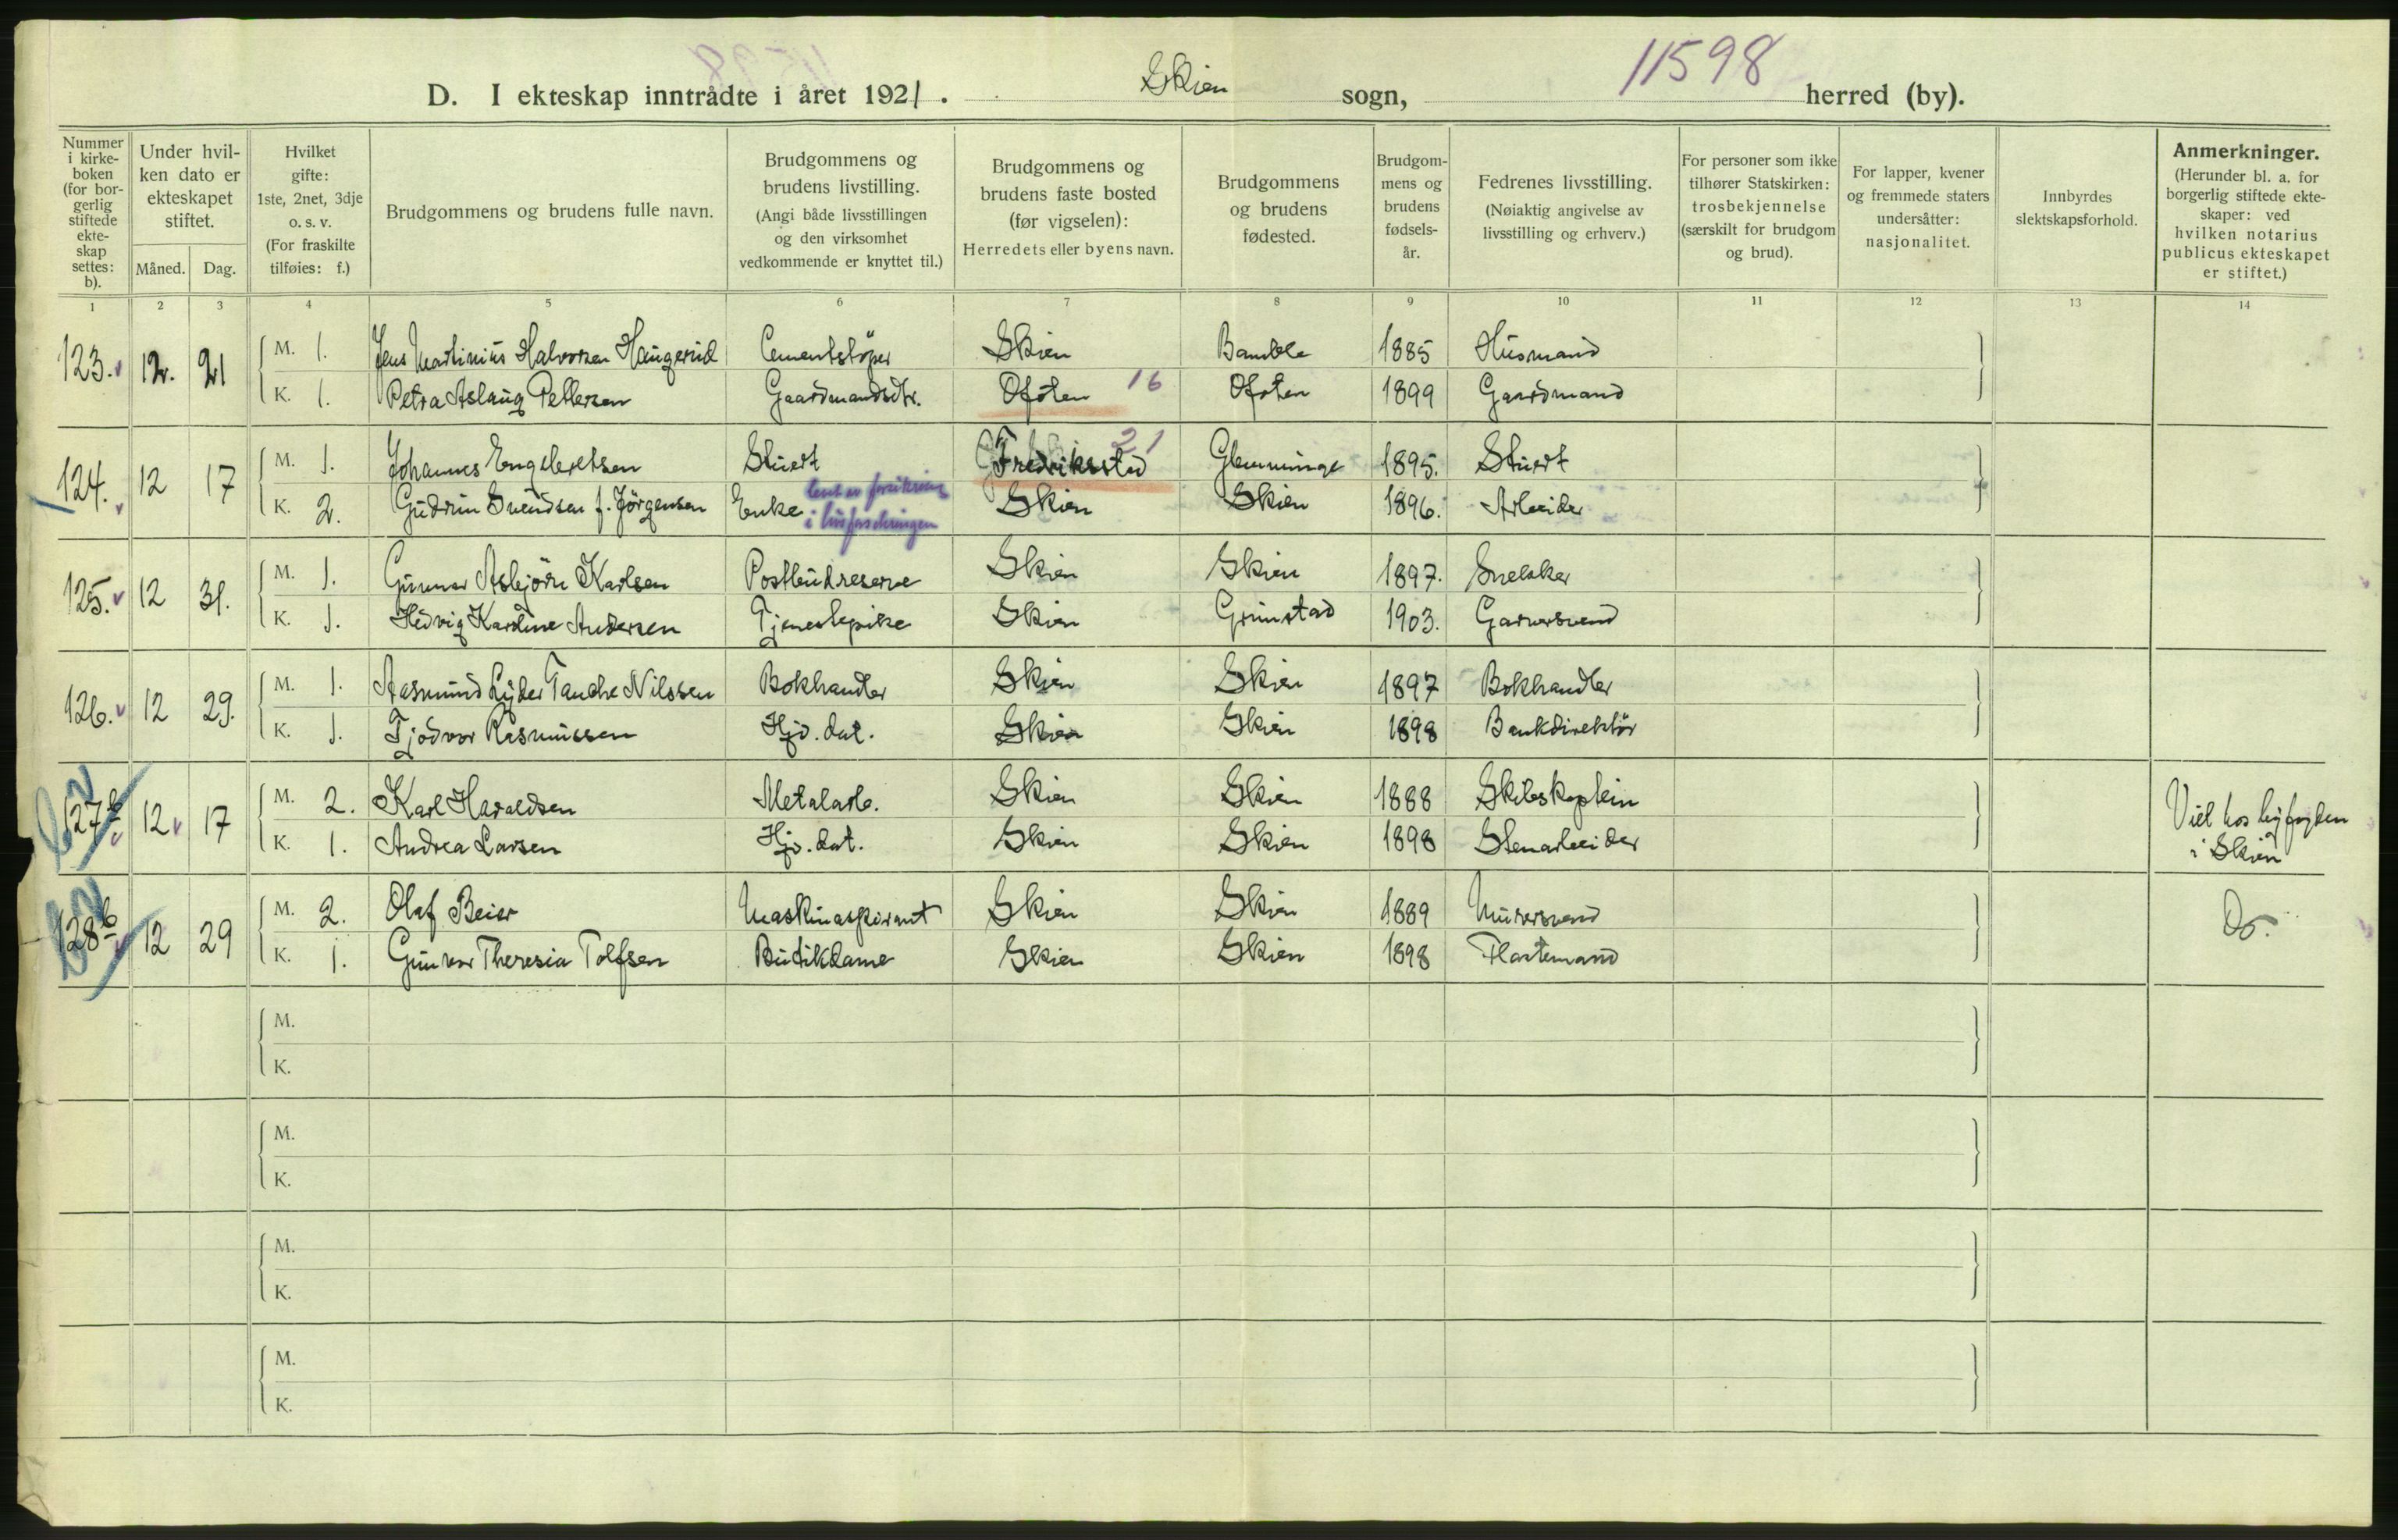 11598
D. I ekteskap inntrådte i året 1921. Skien sogn, herred (by).
Nummer i kirkeboken (for borgerlig stiftede ekteskap settes: b).
Under hvilken dato er ekteskapet stiftet.
Måned. Dag.
Hvilket gifte: 1ste, 2net, 3dje o. s. v. (For fraskilte tilføies: f.)
Brudgommens og brudens fulle navn.
Brudgommens og brudens livstilling. (Angi både livsstillingen og den virksomhet vedkommende er knyttet til.)
Brudgommens og brudens faste bosted (før vigselen): Herredets eller byens navn.
Brudgommens og brudens fødested.
Brudgommens og brudens fødselsår.
Fedrenes livsstilling. (Nøiaktig angivelse av livsstilling og erhverv.)
For personer som ikke tilhører Statskirken: trosbekjennelse (særskilt for brudgom og brud).
For lapper, kvener og fremmede staters undersåtter: nasjonalitet.
Innbyrdes slektskapsforhold.
Anmerkninger. (Herunder bl. a. for borgerlig stiftede ekteskaper: ved hvilken notarius publicus ekteskapet er stiftet.)
1 2 3 4 5 6 7 8 9 10 11 12 13 14
123. 12. 21
M. 1. Jens Martinius Halvorsen Haugerud Cementstöper Skien Bamble 1885 Husmand
K. 1. Petra Aslaug Pettersen Gaardmandsdtr. Ofoten 16 Ofoten 1899 Gaardmand
124. 12 17
M. 1. Johannes Engebretsen Stuert Fredriksstad 21 Glemminge 1895. Stuert
K. 2. Gudrun Svendsen f. Jörgensen Enke Skien Skien 1896. Arbeider
125. 12 31.
M. 1. Gunnar Asbjörn Karlsen Postbudreserve Skien Skien 1897. Snekker
K. 1. Hedvig Karoline Andersen Tjenestepike Skien Grimstad 1903. Garversvend
126. 12 29.
M. 1. Aasmund Lyder Tanche Nilssen Bokhandler Skien Skien 1897 Bokhandler
K. 1. Tjodvor Rasmussen Hjv. dat. Skien Skien 1898 Bankdirektör
127 b 12 17
M. 2. Karl Haraldsen Metalarb. Skien Skien 1888 Skibskaptein Viet hos byfogden
K. 1. Andrea Larsen Hjv. dat. Skien Skien 1898 Stenarbeider i Skien
128 b 12 29
M. 2. Olaf Beier Maskinaspirant Skien Skien 1889 Murersvend Do.
K. 1. Gunvor Theresia Tolfsen Butikdame Skien Skien 1898 Fløtemand
M.
K.
M.
K.
M.
K.
M.
K.